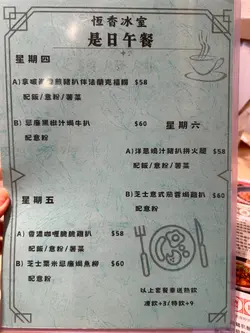 恆香冰室
是日午餐
星期四
配飯/意粉/薯菜
$58
B) 惹味黑椒汁焗牛扒 $60
配意粉
星期六
A) 洋葱燒汁豬扒拼火腿 $58
配飯/意粉/薯菜
B) 芝士意式茄蓉焗雞扒 $60
配意粉
星期五
A) 香濃咖喱脆脆雞扒 $58
配飯/意粉/薯菜
B) 芝士粟米忌廉焗魚柳 $60
配意粉
以上套餐奉送熱飲
凍飲+3/特飲+9